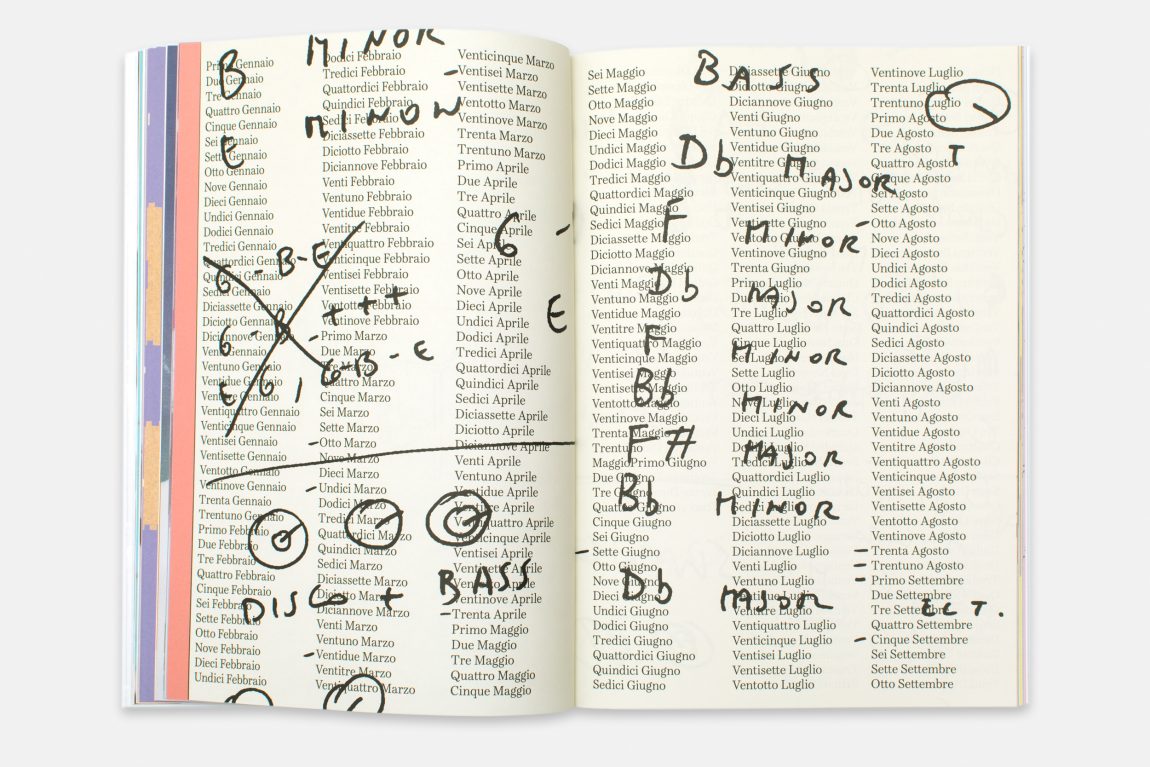 B MINOR
E MINOW
G - B - E
+ + +
G -
G - B - E
E G 1
DISCO + BASS
G -
E
Primo Gennaio
Due Gennaio
Tre Gennaio
Quattro Gennaio
Cinque Gennaio
Sei Gennaio
Sette Gennaio
Otto Gennaio
Nove Gennaio
Dieci Gennaio
Undici Gennaio
Dodici Gennaio
Tredici Gennaio
Quattordici Gennaio
Quindici Gennaio
Sedici Gennaio
Diciassette Gennaio
Diciotto Gennaio
Diciannove Gennaio
Venti Gennaio
Ventuno Gennaio
Ventidue Gennaio
Ventitre Gennaio
Ventiquattro Gennaio
Venticinque Gennaio
Ventisei Gennaio
Ventisette Gennaio
Ventotto Gennaio
Ventinove Gennaio
Trenta Gennaio
Trentuno Gennaio
Primo Febbraio
Due Febbraio
Tre Febbraio
Quattro Febbraio
Cinque Febbraio
Sei Febbraio
Sette Febbraio
Otto Febbraio
Nove Febbraio
Dieci Febbraio
Undici Febbraio
Dodici Febbraio
Tredici Febbraio
Quattordici Febbraio
Quindici Febbraio
Sedici Febbraio
Diciassette Febbraio
Diciotto Febbraio
Diciannove Febbraio
Venti Febbraio
Ventuno Febbraio
Ventidue Febbraio
Ventitre Febbraio
Ventiquattro Febbraio
Venticinque Febbraio
Ventisei Febbraio
Ventisette Febbraio
Ventotto Febbraio
Ventinove Febbraio
Primo Marzo
Due Marzo
Tre Marzo
Quattro Marzo
Cinque Marzo
Sei Marzo
Sette Marzo
Otto Marzo
Nove Marzo
Dieci Marzo
Undici Marzo
Dodici Marzo
Tredici Marzo
Quattordici Marzo
Quindici Marzo
Sedici Marzo
Diciassette Marzo
Diciotto Marzo
Diciannove Marzo
Venti Marzo
Ventuno Marzo
Ventidue Marzo
Ventitre Marzo
Ventiquattro Marzo
Venticinque Marzo
Ventisei Marzo
Ventisette Marzo
Ventotto Marzo
Ventinove Marzo
Trenta Marzo
Trentuno Marzo
Primo Aprile
Due Aprile
Tre Aprile
Quattro Aprile
Cinque Aprile
Sei Aprile
Sette Aprile
Otto Aprile
Nove Aprile
Dieci Aprile
Undici Aprile
Dodici Aprile
Tredici Aprile
Quattordici Aprile
Quindici Aprile
Sedici Aprile
Diciassette Aprile
Diciotto Aprile
Diciannove Aprile
Venti Aprile
Ventuno Aprile
Ventidue Aprile
Ventitre Aprile
Ventiquattro Aprile
Venticinque Aprile
Ventisei Aprile
Ventisette Aprile
Ventotto Aprile
Ventinove Aprile
Trenta Aprile
Primo Maggio
Due Maggio
Tre Maggio
Quattro Maggio
Cinque Maggio
BASS
T
Db MAJOR
F MINOR
Db MAJOR
F MINOR
Bb MINOR
F# MAJOR
Bb MINOR
Db MAJOR ECT.
Sei Maggio
Sette Maggio
Otto Maggio
Nove Maggio
Dieci Maggio
Undici Maggio
Dodici Maggio
Tredici Maggio
Quattordici Maggio
Quindici Maggio
Sedici Maggio
Diciassette Maggio
Diciotto Maggio
Diciannove Maggio
Venti Maggio
Ventuno Maggio
Ventidue Maggio
Ventitre Maggio
Ventiquattro Maggio
Venticinque Maggio
Ventisei Maggio
Ventisette Maggio
Ventotto Maggio
Ventinove Maggio
Trenta Maggio
Trentuno
MaggioPrimo Giugno
Due Giugno
Tre Giugno
Quattro Giugno
Cinque Giugno
Sei Giugno
Sette Giugno
Otto Giugno
Nove Giugno
Dieci Giugno
Undici Giugno
Dodici Giugno
Tredici Giugno
Quattordici Giugno
Quindici Giugno
Sedici Giugno
Diciassette Giugno
Diciotto Giugno
Diciannove Giugno
Venti Giugno
Ventuno Giugno
Ventidue Giugno
Ventitre Giugno
Ventiquattro Giugno
Venticinque Giugno
Ventisei Giugno
Ventisette Giugno
Ventotto Giugno
Ventinove Giugno
Trenta Giugno
Primo Luglio
Due Luglio
Tre Luglio
Quattro Luglio
Cinque Luglio
Sei Luglio
Sette Luglio
Otto Luglio
Nove Luglio
Dieci Luglio
Undici Luglio
Dodici Luglio
Tredici Luglio
Quattordici Luglio
Quindici Luglio
Sedici Luglio
Diciassette Luglio
Diciotto Luglio
Diciannove Luglio
Venti Luglio
Ventuno Luglio
Ventidue Luglio
Ventitre Luglio
Ventiquattro Luglio
Venticinque Luglio
Ventisei Luglio
Ventisette Luglio
Ventotto Luglio
Ventinove Luglio
Trenta Luglio
Trentuno Luglio
Primo Agosto
Due Agosto
Tre Agosto
Quattro Agosto
Cinque Agosto
Sei Agosto
Sette Agosto
Otto Agosto
Nove Agosto
Dieci Agosto
Undici Agosto
Dodici Agosto
Tredici Agosto
Quattordici Agosto
Quindici Agosto
Sedici Agosto
Diciassette Agosto
Diciotto Agosto
Diciannove Agosto
Venti Agosto
Ventuno Agosto
Ventidue Agosto
Ventitre Agosto
Ventiquattro Agosto
Venticinque Agosto
Ventisei Agosto
Ventisette Agosto
Ventotto Agosto
Ventinove Agosto
Trenta Agosto
Trentuno Agosto
Primo Settembre
Due Settembre
Tre Settembre
Quattro Settembre
Cinque Settembre
Sei Settembre
Sette Settembre
Otto Settembre